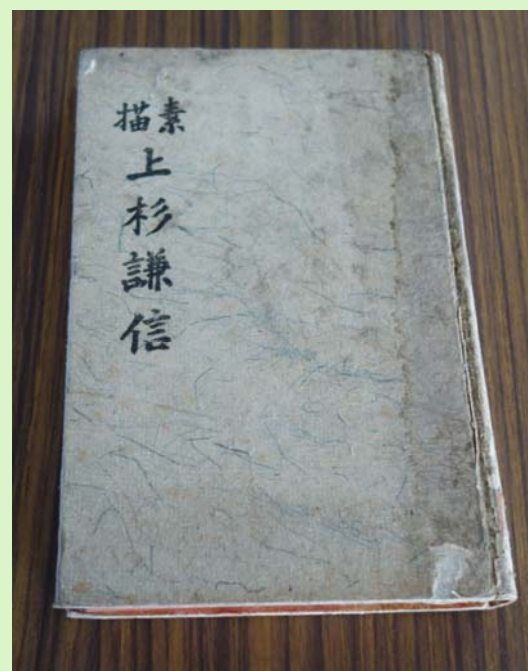 素描
上杉謙信